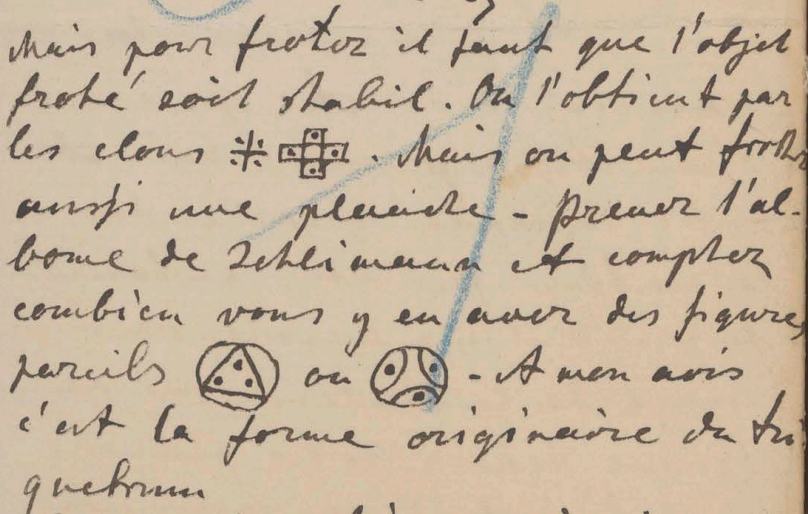 Mais pour froter il faut que l'objet
froté soit stabil. On l'obtient par
les clous . Mais on peut froter
aussi une planche - Prenez l'al-
bome de Schlimann et comptez
combien vous y en avez des figures
pareils ou - A mon avis
c'est la forme originaire du tri
quetrum